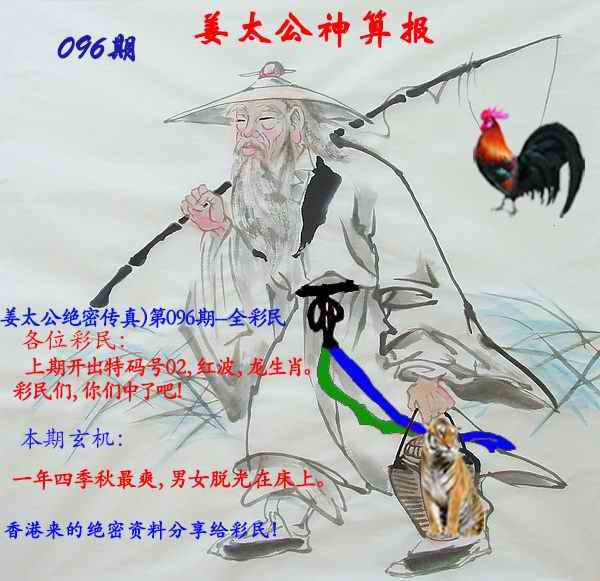 姜太公神算报
096期
姜太公绝密传真)第096期--全彩民
各位彩民:
上期开出特码号02,红波,龙生肖。
彩民们,你们中了吧!
本期玄机:
一年四季秋最爽,男女脱光在床上。
香港来的绝密资料分享给彩民!